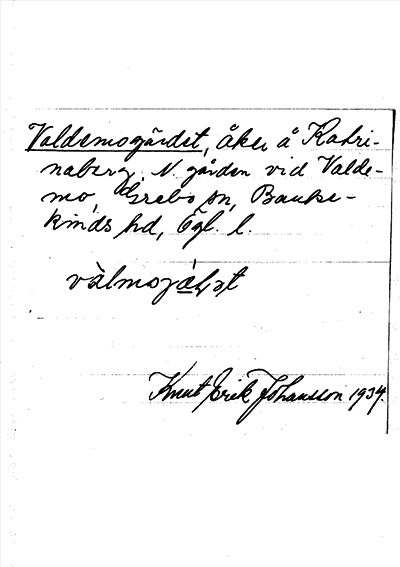 Valdemogärdet, åker å Kathri-
naberg, N. gården vid Valde-
mo, Grebo sn, Banke-
kinds hd, Ögl. l.
Knut Erik Johansson 1934.